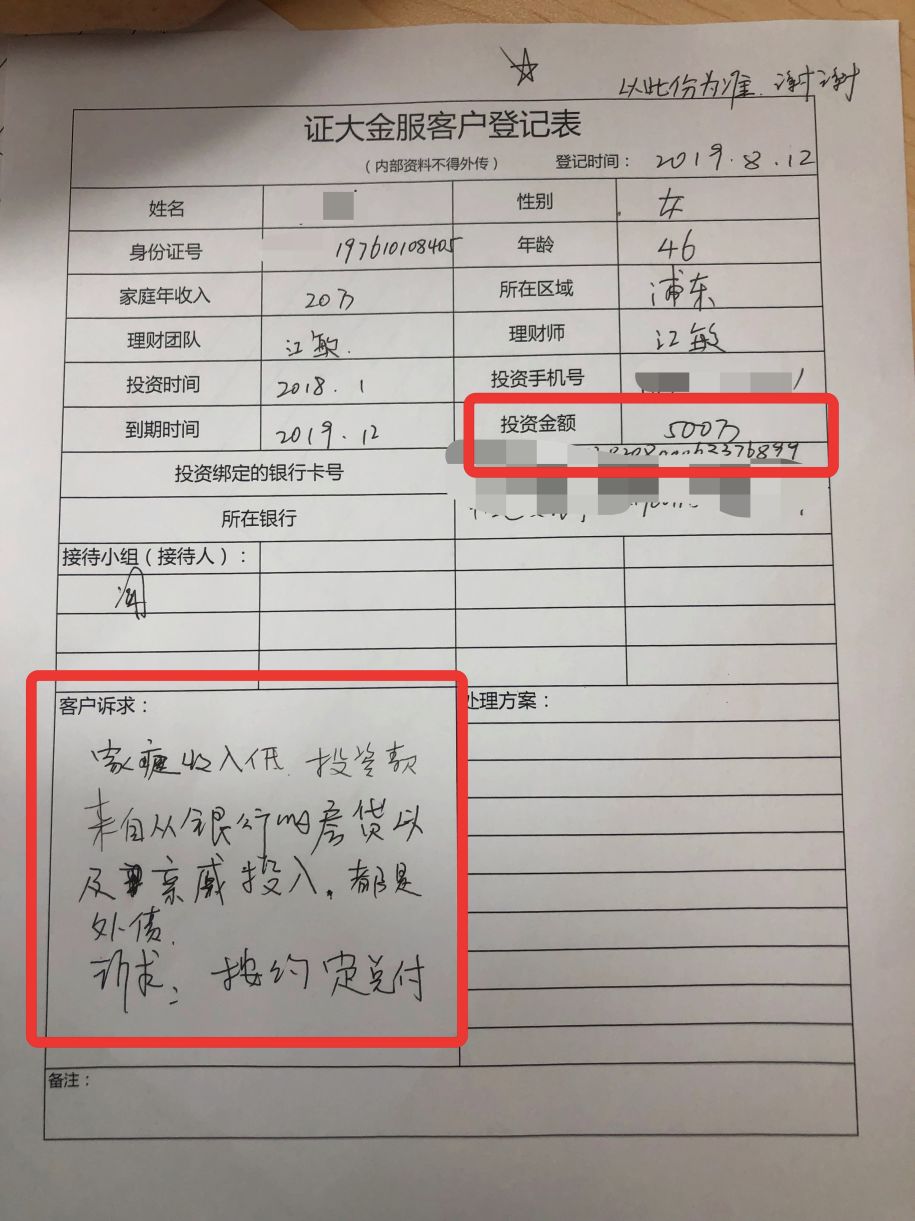 以此份为准、谢谢
证大金服客户登记表
（内部资料不得外传） 登记时间： 2019.8.12
姓名 性别 女
身份证号 197610108405 年龄 46
家庭年收入 20万 所在区域 浦东
理财团队 江敏. 理财师 江敏
投资时间 2018.1 投资手机号
到期时间 2019.12 投资金额 500万
投资绑定的银行卡号
所在银行
接待小组（接待人）：
客户诉求： 处理方案：
家庭收入低、投资款
来自从银行的房贷以
及亲戚投入，都是
外债.
诉求：按约定兑付
备注：